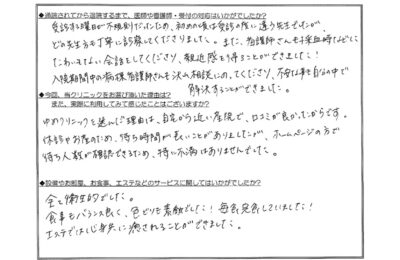 ●通院されてから退院するまで、医師や看護師・受付の対応はいかがでしたか?
受診する曜日が不規則だったため、初めの頃は受診の度に違う先生でしたが、
どの先生も丁寧に診察してくださりました。また、看護師さんも採血時などに
たわいもない会話をしてくださり、親近感を得ることができました!
入院期間中の病棟看護師さんも沢山相談にのってくださり、不安な事を自分の中で
解決することができました。
●今回、当クリニックをお選び頂いた理由は?
また、実際に利用してみて感じたことはございますか?
ゆめクリニックを選んだ理由は、自宅から近い産院で、口コミが良かったからです。
休診やお産のため、待ち時間が長いことがありましたが、ホームページの方で
待ち人数が確認できるため、特に不満はありませんでした。
●設備やお部屋、お食事、エステなどのサービスに関してはいかがでしたか?
全て衛生的でした。
食事もバランス良く、色どりも素敵でした!毎食完食していました!
エステでは心身共に癒されることができました。